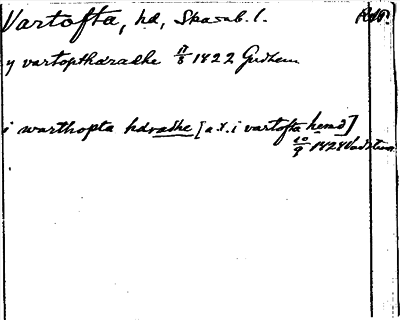 Vartofta, hd, Skarab. l. RAp.
y vartoptharadhe 11/8 1422 Gudhem
i warthopta háradhe [a.s. i vartofta hemd]
10/9 1424 Vadstena